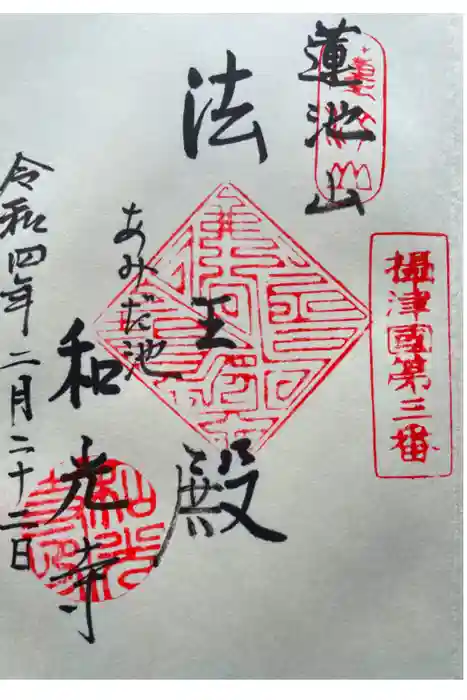 摂津國第三番
蓮池山
法王殿
あみだ池
和光寺
令和四年二月二十三日